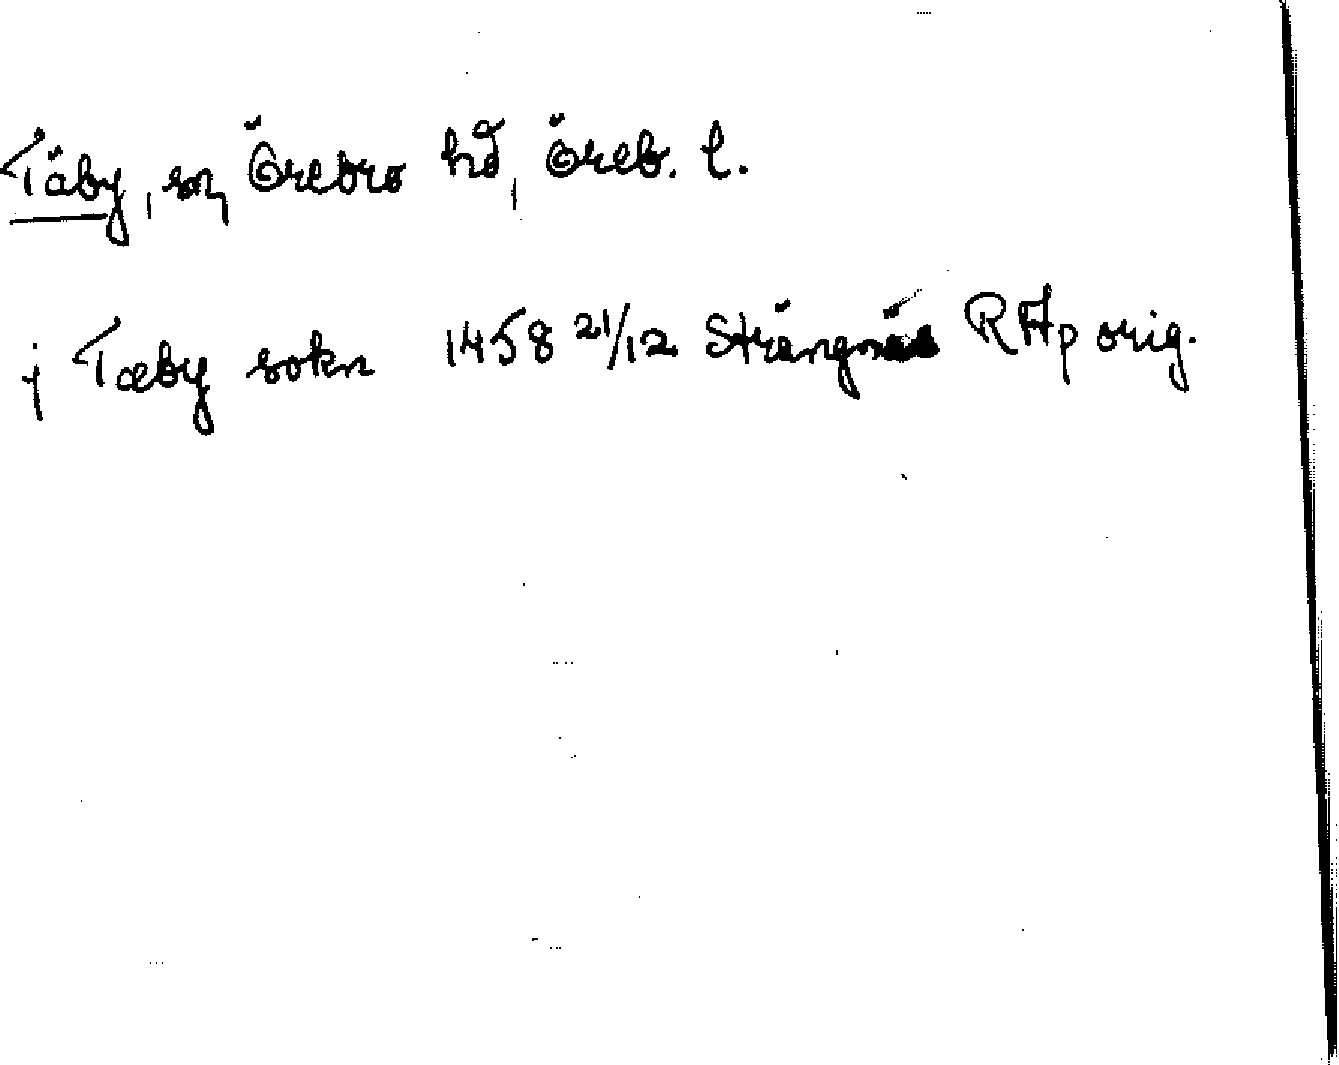 Täby, sn, Örebro hd, Öreb. l.
j Tæby sokn 1458 21/12 Strängnäs RAp orig.